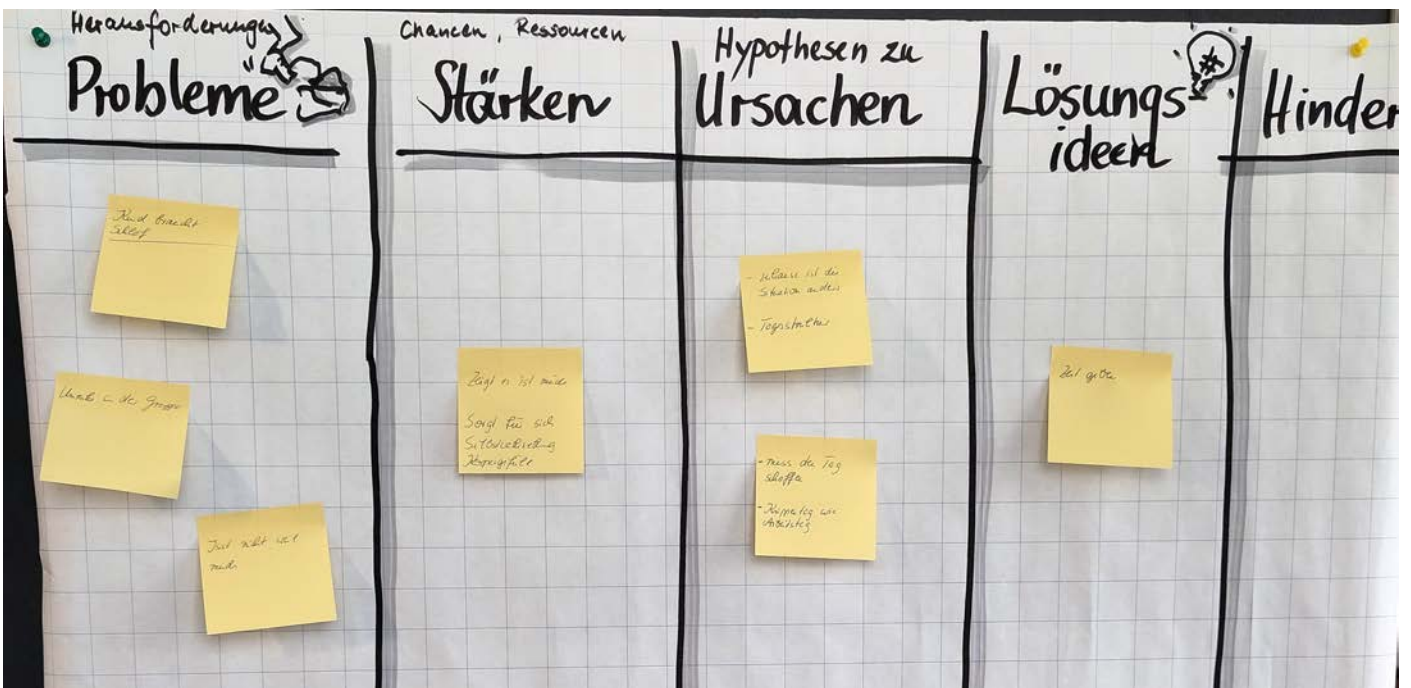 Herausforderungen
"Probleme"
Kind braucht
Schlaf
Unruhe in der Gruppe
Isst nicht weil
müde
Chancen, Ressourcen
Stärken
Zeigt er ist müde
Sorgt für sich
Körpergefühl
Hypothesen zu
Ursachen
- zuhause ist die
Situation anders
- Tagesstruktur
- muss den Tag
schaffen
- Krippentag wie
Arbeitstag
Lösungs
ideen
Zeit geben
Hinder